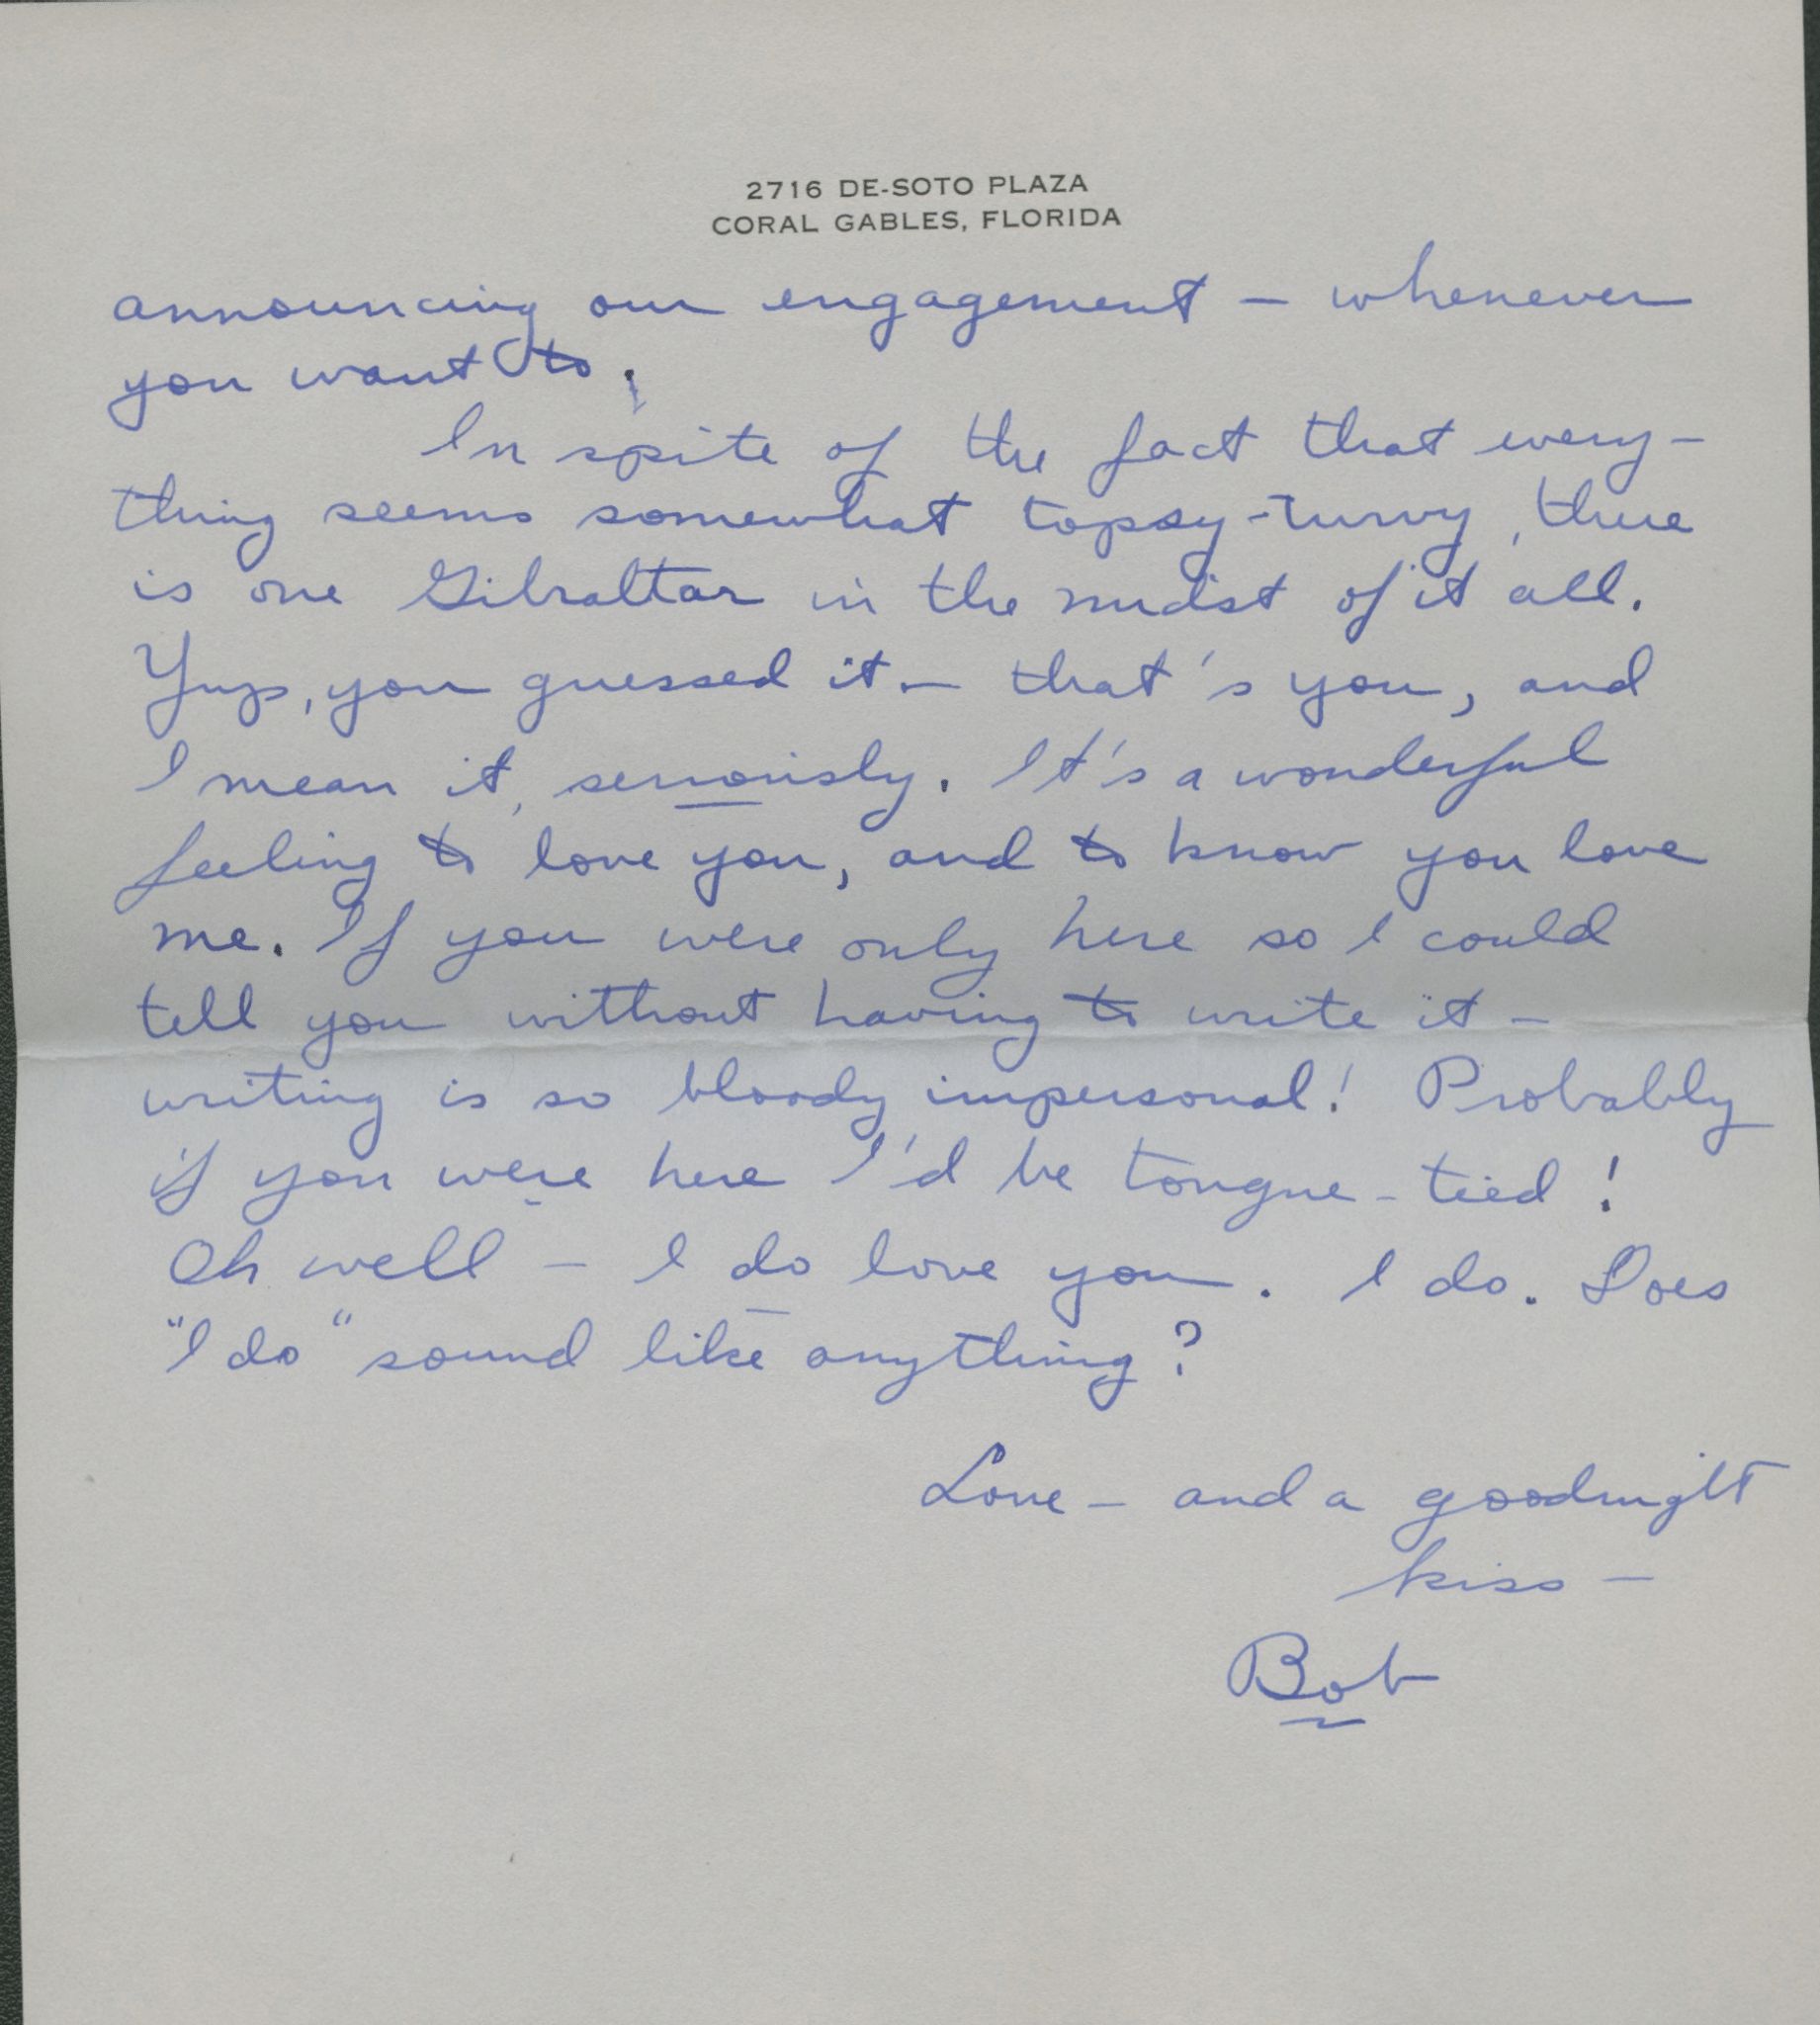 2716 DE-SOTO PLAZA
CORAL GABLES, FLORIDA
announcing our engagement — whenever
you want to.
In spite of the fact that every-
thing seems somewhat topsy-turvy, there
is one Gibraltar in the midst of it all.
Yup, you guessed it — that's you, and
I mean it, seriously. It's a wonderful
feeling to love you, and to know you love
me. If you were only here so I could
tell you without having to write it —
writing is so bloody impersonal! Probably
if you were here I'd be tongue-tied!
Oh well — I do love you. I do. Does
"I do" sound like anything?
Love — and a goodnight
kiss —
Bob